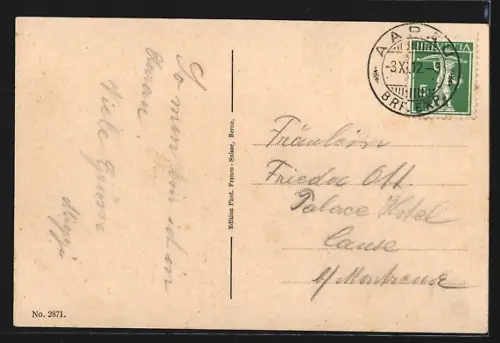 So nun bin ich in
Aarau.
Viele Grüsse
Edition Phot. Franco-Suisse, Berne.
No. 2871.
AARAU
-3.XI.12.-
BRF. EXP.
HELVETIA
Fräulein
Frieda Ott
Palace Hotel
Caux
b/ Montreux